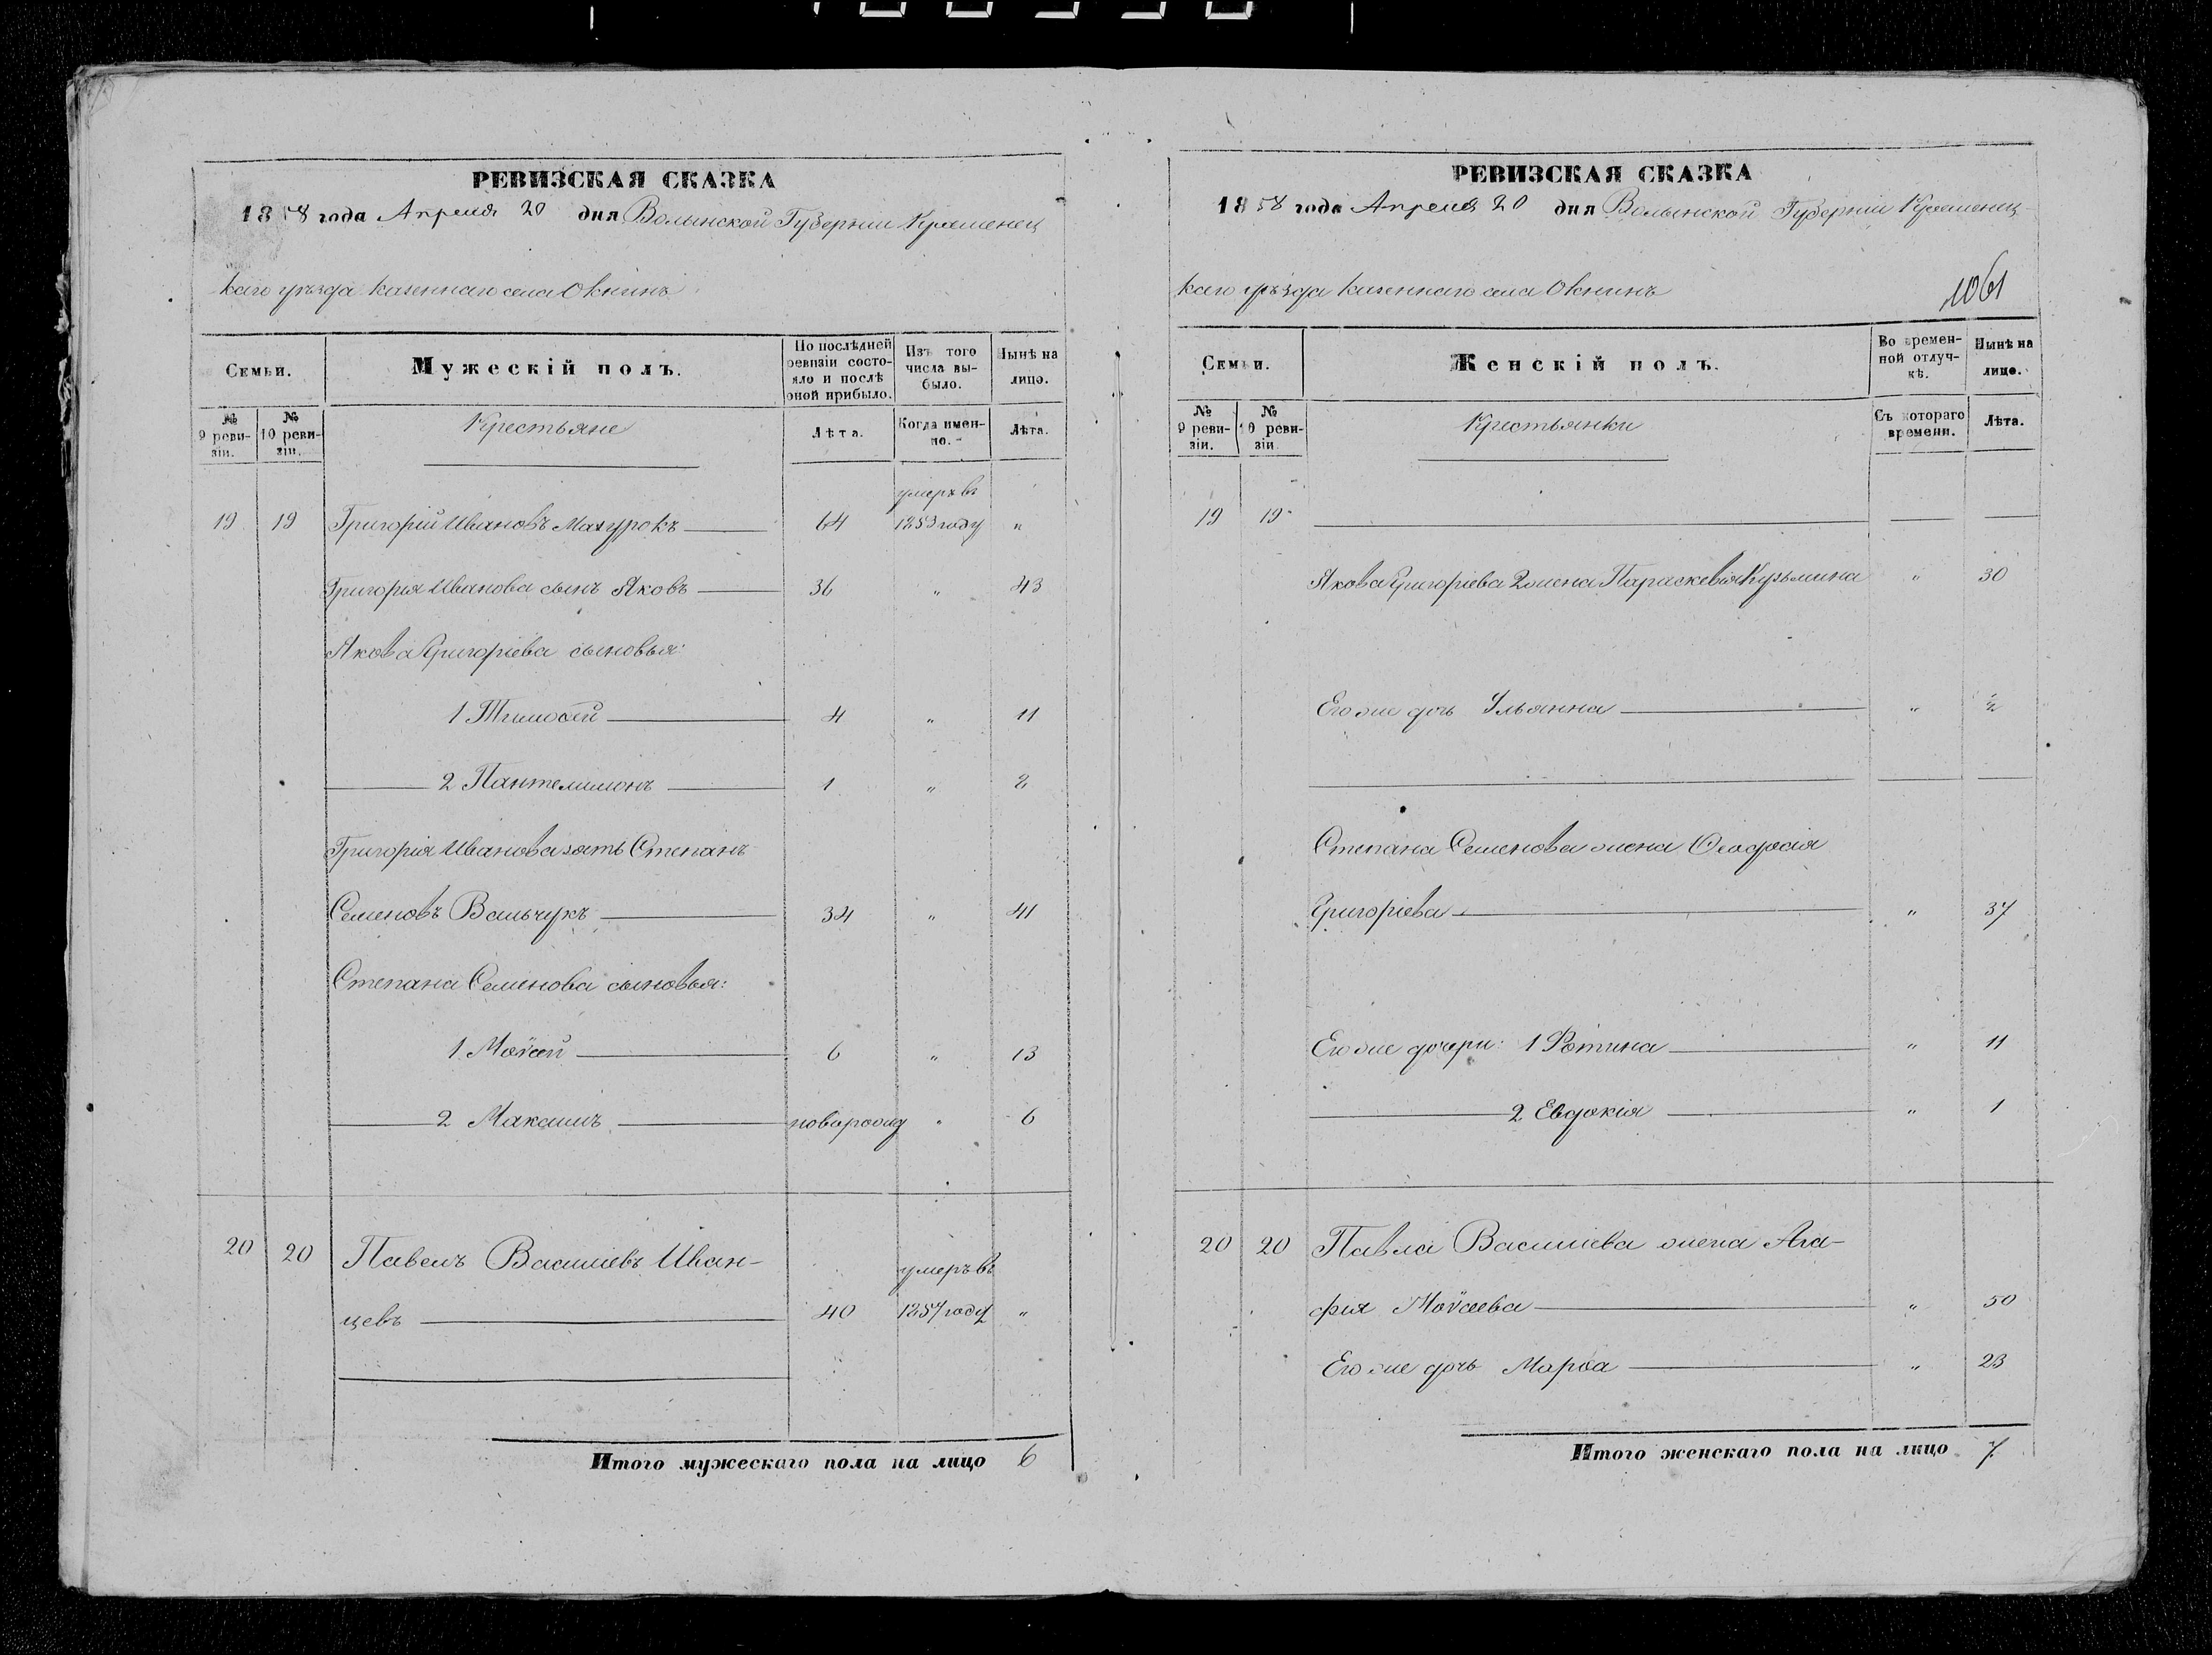 РЕВИЗСКАЯ СКАЗКА
1858 года Апреля 20 дня Волынской Губернии Кременец
каго уѣзда казеннаго села Окнинъ
Семьи.
Мужескій полъ.
По послѣдней ревизіи состояло и послѣ оной прибыло.
Изъ того числа выбыло.
Нынѣ на лицо.
№ 9 ревизіи.
№ 10 ревизіи.
Крестьяне
Лѣта.
Когда именно.
Лѣта.
умеръ въ
19 19 Григорій Ивановъ Мазурокъ 64 1853 году "
Григорія Иванова сынъ Яковъ 36 " 43
Якова Григоріева сыновья:
1 Тимоѳей 4 " 11
2 Пантелимонъ 1 " 8
Григорія Иванова зять Степанъ
Семеновъ Вальчукъ 34 " 41
Степана Семенова сыновья:
1 Моѵсей 6 " 13
2 Максимъ новорожд " 6
20 20 Павелъ Василіевъ Иван-
умеръ въ
цевъ 40 1857 году "
Итого мужескаго пола на лицо 6
РЕВИЗСКАЯ СКАЗКА
1858 года Апреля 20 дня Волынской Губерніи Кременец-
каго уѣзда казеннаго села Окнинъ
1061
Семьи.
Женскій полъ.
Во временной отлучкѣ.
Нынѣ на лицо.
№ 9 ревизіи.
№ 10 ревизіи.
Крестьянки
Съ котораго времени.
Лѣта.
19 19
Якова Григоріева жена Параскевія Кузьмина " 30
Его же дочь Ульянна " 2
Степана Семенова жена Ѳеодосія
Григоріева " 37
Его же дочери: 1 Фотина " 11
2 Евдокія " 1
20 20 Павла Василіева жена Ага-
фія Моѵсеева " 50
Его же дочь Марѳа " 23
Итого женскаго пола на лицо 7